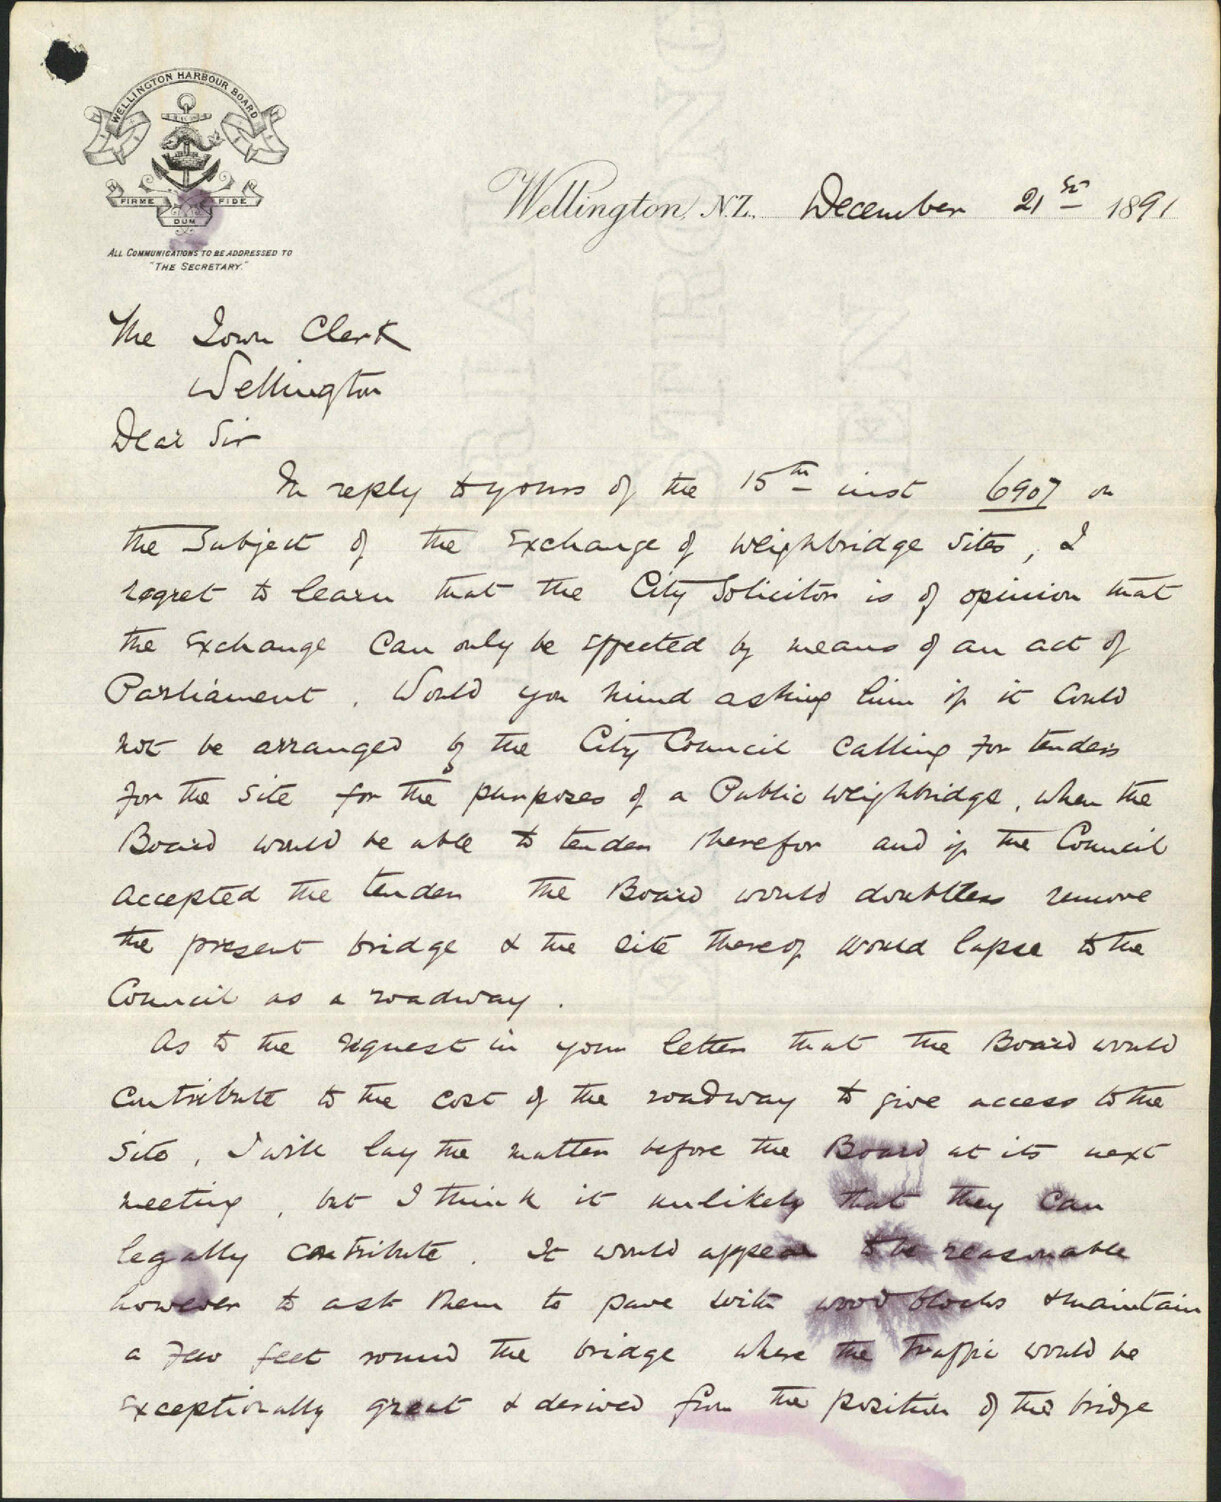 WELLINGTON HARBOUR BOARD
FIRME DUM FIDE
ALL COMMUNICATIONS TO BE ADDRESSED TO
"THE SECRETARY."
Wellington, N.Z., December 21st 1891
The Town Clerk
Wellington
Dear Sir
In reply to yours of the 15th inst 6907 on
the Subject of the Exchange of Weighbridge Sites, I
regret to learn that the City Solicitor is of opinion that
the Exchange can only be effected by means of an act of
Parliament. Would you mind asking him if it could
not be arranged by the City Council calling for tenders
for the site for the purposes of a Public Weighbridge, when the
Board would be able to tender therefor and if the Council
accepted the tender the Board would doubtless remove
the present bridge & the site thereof would lapse to the
Council as a roadway.
As to the request in your letter that the Board would
contribute to the cost of the roadway to give access to the
Site, I will lay the matter before the Board at its next
meeting, but I think it unlikely that they can
legally contribute. It would appear to be reasonable
however to ask them to pave with wood blocks & maintain
a few feet round the bridge where the traffic would be
exceptionally great & derived from the position of the bridge